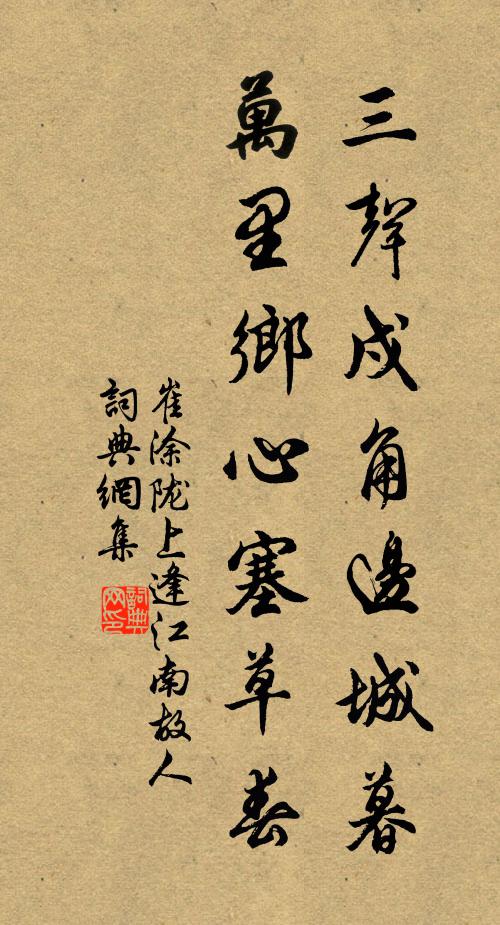 三聲戍角邊城暮
萬里鄉心塞草春
崔涂陇上逢江南故人
詞典網集
詞典網印